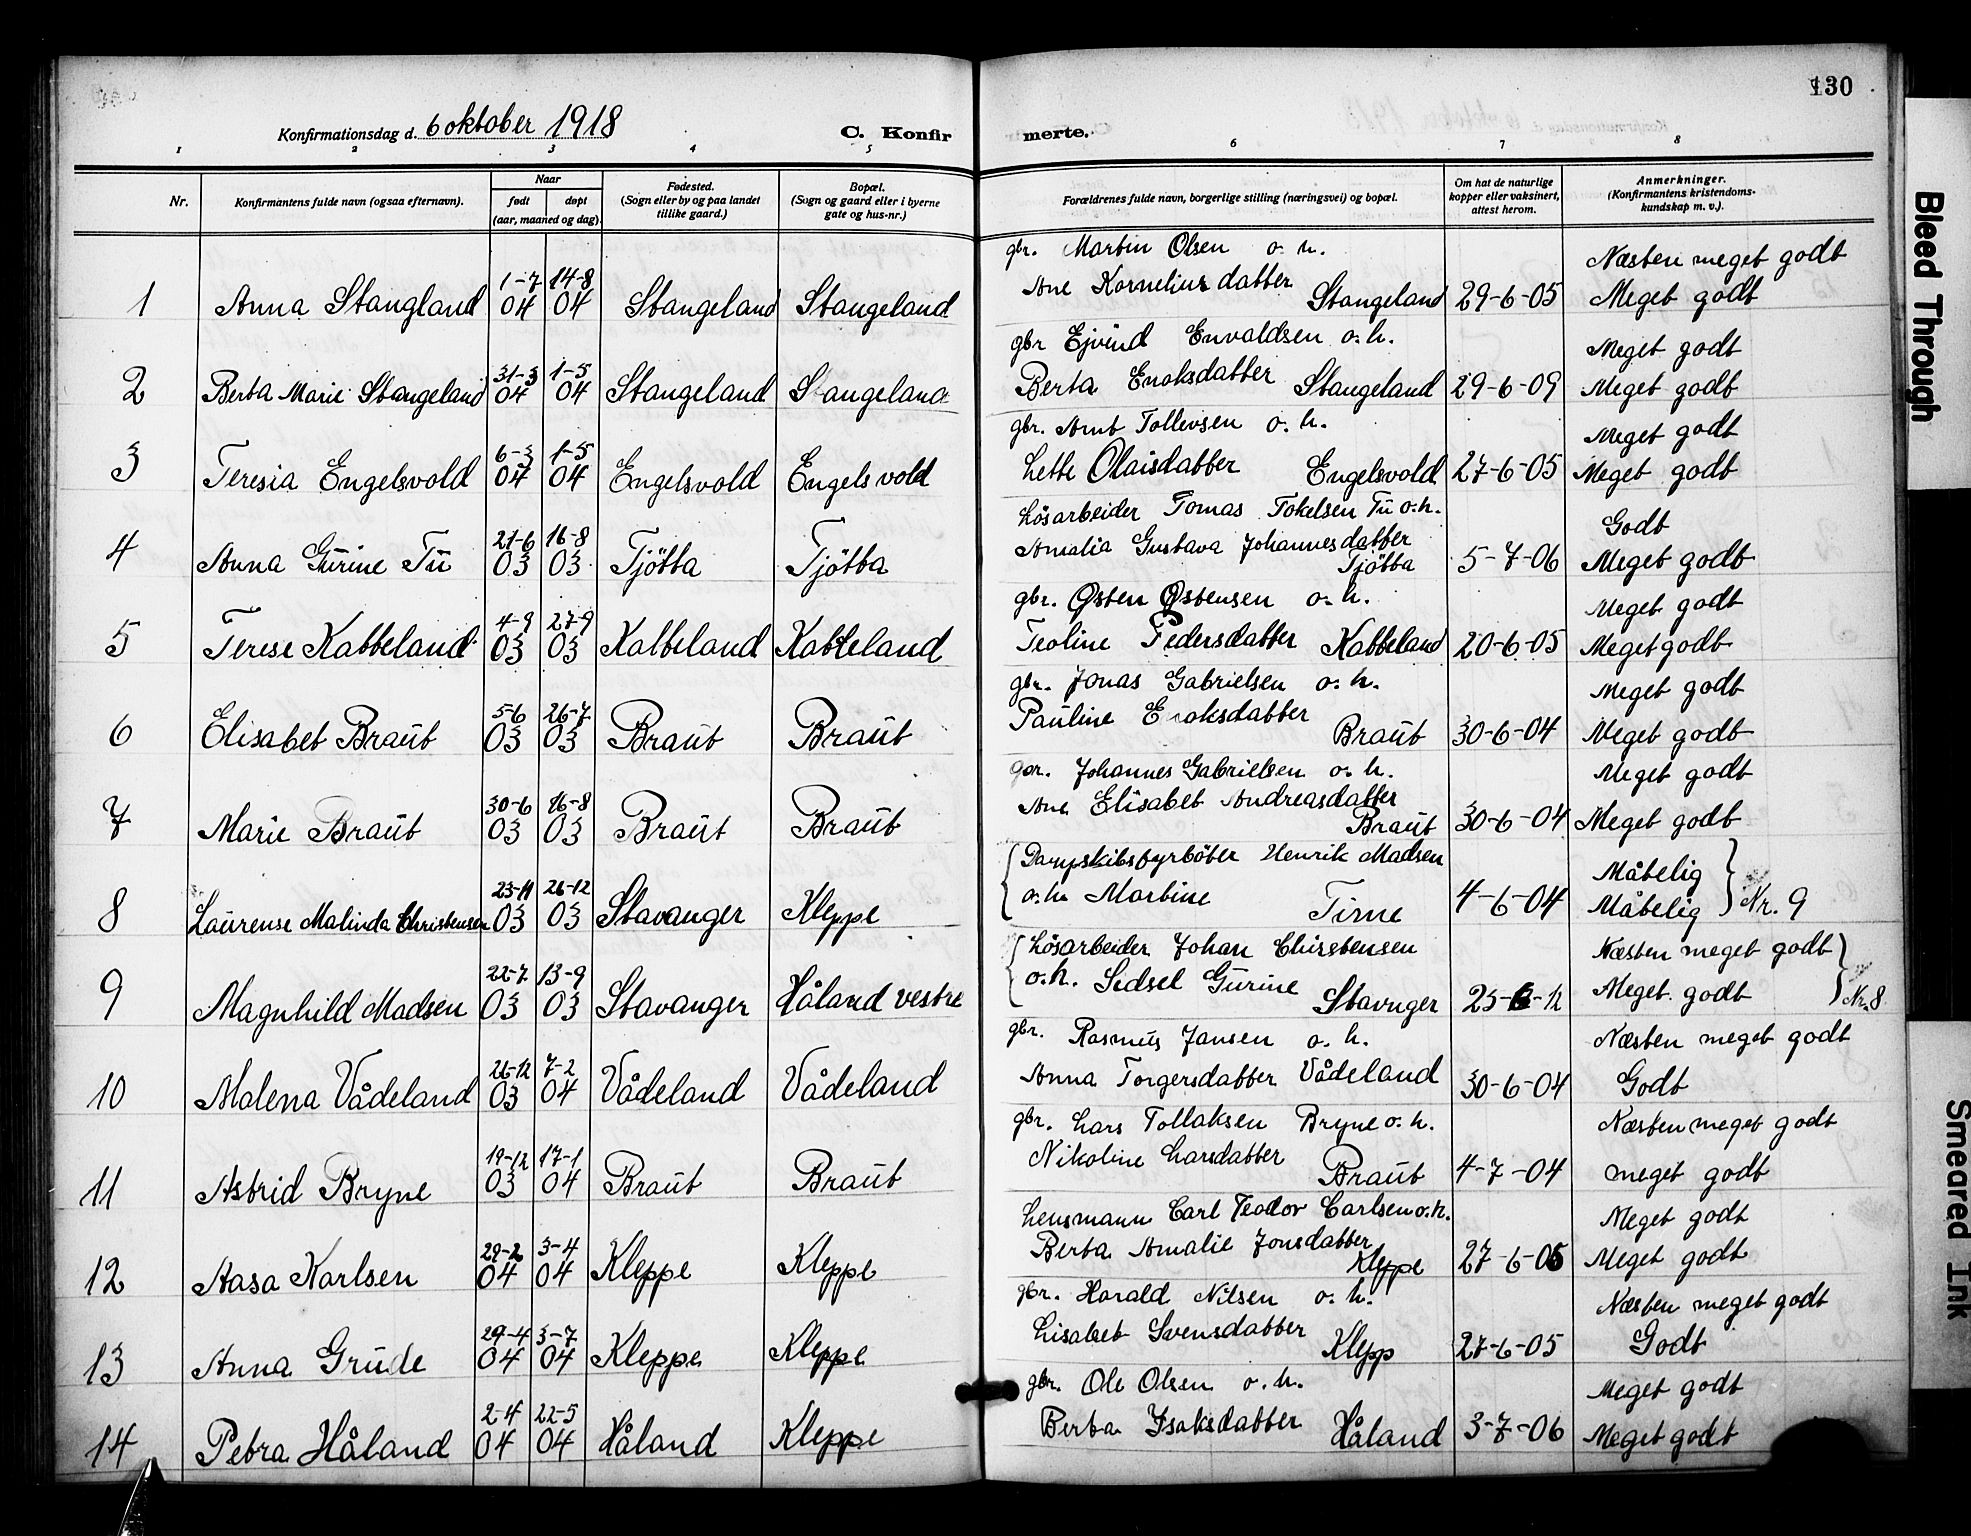 130
Konfirmationsdag d. 6 oktober 1918 C. Konfir merte.
1 2 3 4 5 6 7 8
Nr.
Konfirmantens fulde navn (ogsaa efternavn).
Naar
født døpt
(aar, maaned og dag).
Fødested.
(Sogn eller by og paa landet
tillike gaard.)
Bopæl.
(Sogn og gaard eller i byerne
gate og hus-nr.)
Forældrenes fulde navn, borgerlige stilling (næringsvei) og bopæl.
Om hat de naturlige
kopper eller vaksinert,
attest herom.
Anmerkninger.
(Konfirmantens kristendoms-
kundskap m. v.).
gbr. Martin Olsen o. h. Næsten meget godt
1-7 14-8 Ane Kornelius datter
1 Anna Stangland 04 04 Stangeland Stangeland Stangeland 29-6-05 Meget godt
gbr Ejvind Envaldsen o. h. Meget godt
31-3 1-5
2 Berta Marie Stangeland 04 04 Stangeland Stangeland Berta Enoksdatter Stangeland 29-6-09 Meget godt
gbr. Arnt Tollevsen o. h. Meget godt
6-3 1-5
3 Teresia Engelsvold 04 04 Engelsvold Engelsvold Lette Olaisdatter Engelsvold 27-6-05 Meget godt
Løsarbeider Tomas Tokelsen Tu o. h. Godt
21-6 16-8 Amalia Gustava Johannesdatter
4 Anna Gurine Tu 03 03 Tjötta Tjötta Tjötta 5-7-06 Meget godt
gbr. Østen Østensen o. h. Meget godt
4-9 27-9
5 Terese Kabbeland 03 03 Kabbeland Kabbeland Teoline Pedersdatter Kabbeland 20-6-05 Meget godt
gbr. Jonas Gabrielsen o. h. Meget godt
5-6 26-7 Pauline Enoksdatter
6 Elisabet Braut 03 03 Braut Braut Braut 30-6-04 Meget godt
gbr. Johannes Gabrielsen o. h. Meget godt
30-6 16-8 Ane Elisabet Andreasdatter
7 Marie Braut 03 03 Braut Braut Braut 30-6-04 Meget godt
Dampskibsfyrböter Henrik Madsen Måtelig
23-11 26-12 o. h. Martine
8 Laurense Malinda Christensen 03 03 Stavanger Kleppe Tirne 4-6-04 Måtelig Nr. 9
Løsarbeider Johan Chirstensen Næsten meget godt
22-7 13-9 o. h. Sidsel Gurine
9 Magnhild Madsen 03 03 Stavanger Håland vestre Stavnger Meget godt Nr. 8
gbr. Rasmus Jansen o. h. Næsten meget godt
26-12 7-2
10 Malena Vådeland 03 04 Vådeland Vådeland Anna Torgersdatter Vådeland 30-6-04 Godt
gbr. Lars Tollaksen Bryne o. h. Næsten meget godt
19-12 17-1 Nikoline Larsdatter
11 Astrid Bryne 03 04 Braut Braut Braut 4-7-04 meget godt
Lensmann Carl Teodor Carlsen o. h. Meget godt
29-2 3-4 Berta Amalie Jonsdatter
12 Aasa Karlsen 04 04 Kleppe Kleppe Kleppe 27-6-06 Meget godt
gbr. Harald Nilsen o. h. Næsten meget godt
29-4 3-7 Lisabet Svensdatter
13 Anna Grude 04 04 Kleppe Kleppe Klepp 27-6-05 Godt
gbr. Ole Olsen o. h. Meget godt
2-4 22-5
14 Petra Håland 04 04 Håland Kleppe Berta Isaksdatter Håland 3-7-06 Meget godt
Bleed Through
Smeared Ink